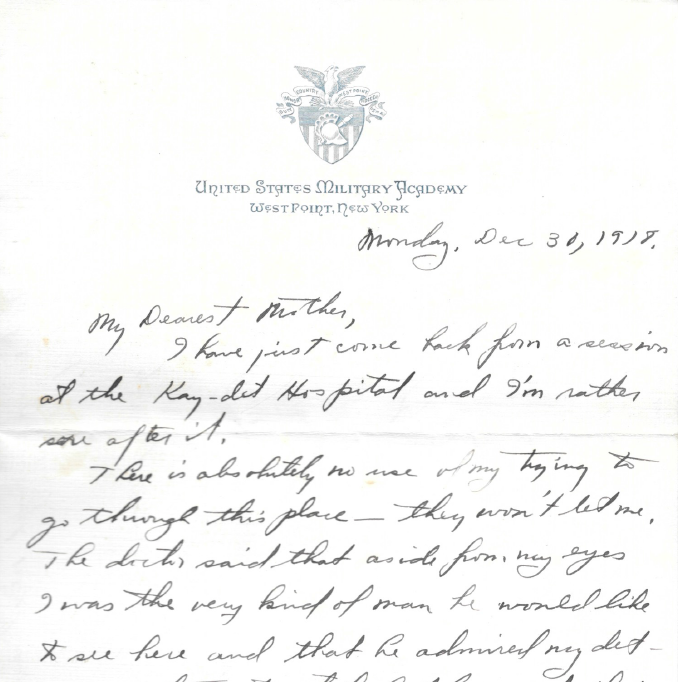 UNITED STATES MILITARY ACADEMY
WEST POINT, NEW YORK
Monday, Dec 30, 1918.
My Dearest Mother,
I have just come back from a session
at the Kay-det Hospital and I'm rather
sore after it.
There is absolutely no use of my trying to
go through this place — they won't let me.
The doctor said that aside from my eyes
I was the very kind of man he would like
to see here and that he admired my det-